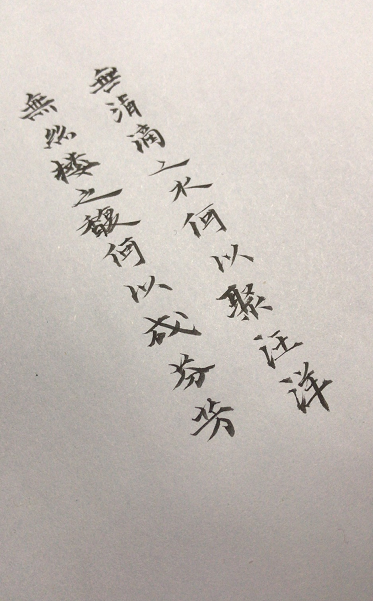 無涓滴之水何以聚汪洋
無絲楼之馥何以成芬芳